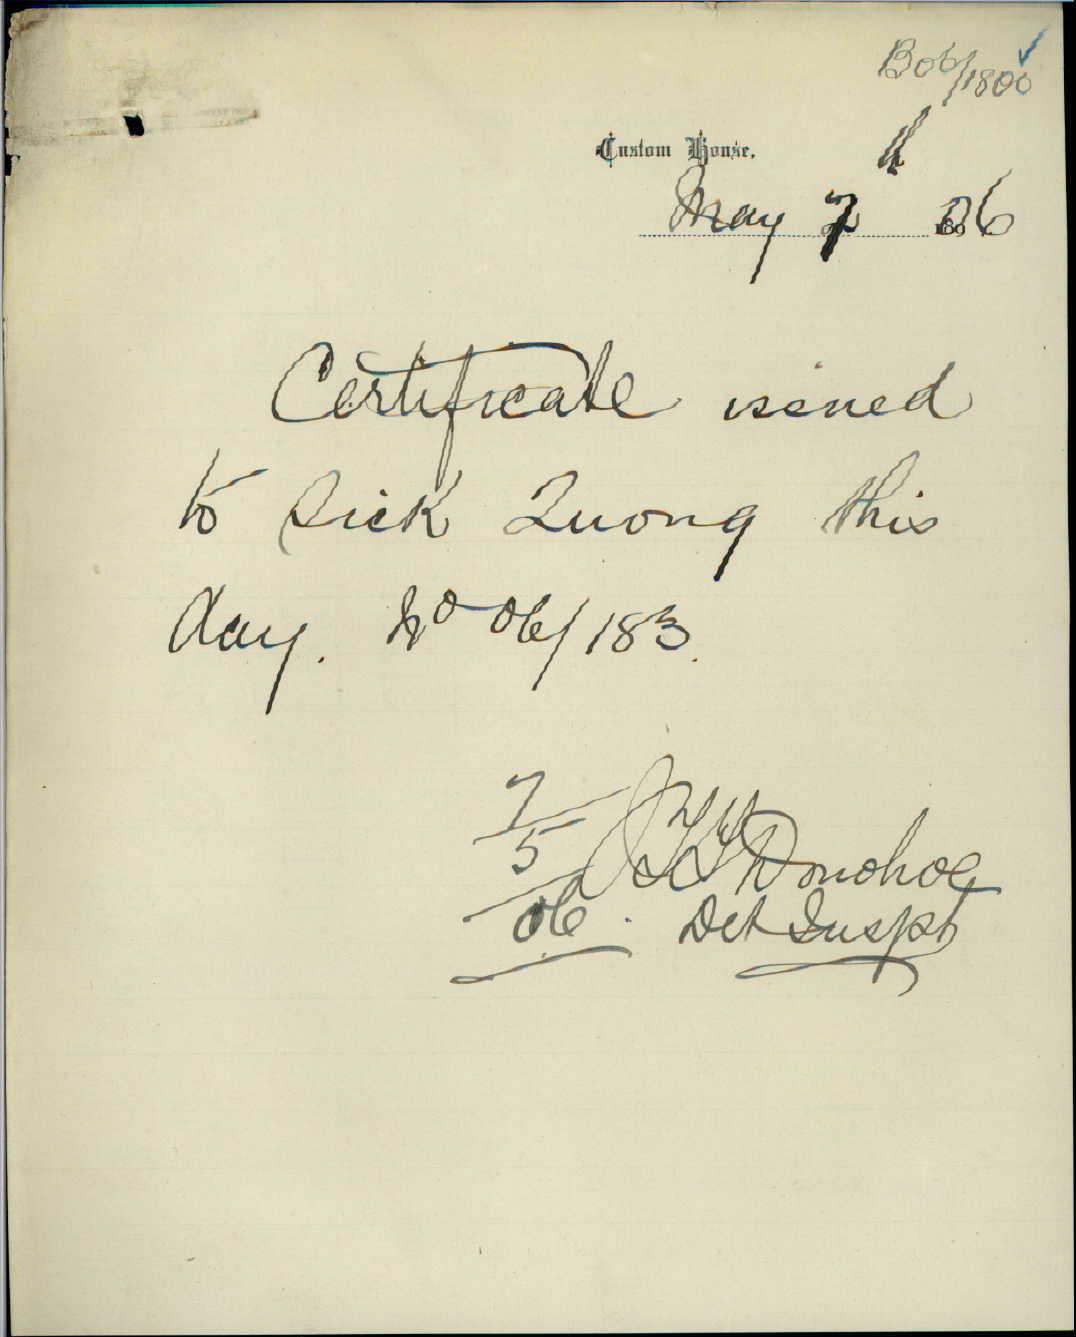 B06/1800
Custom House,
May 7th 06
Certificate issued
to Sick Quong this
day. No 06/183.
7/5/06
Donohoe
Det Inspt